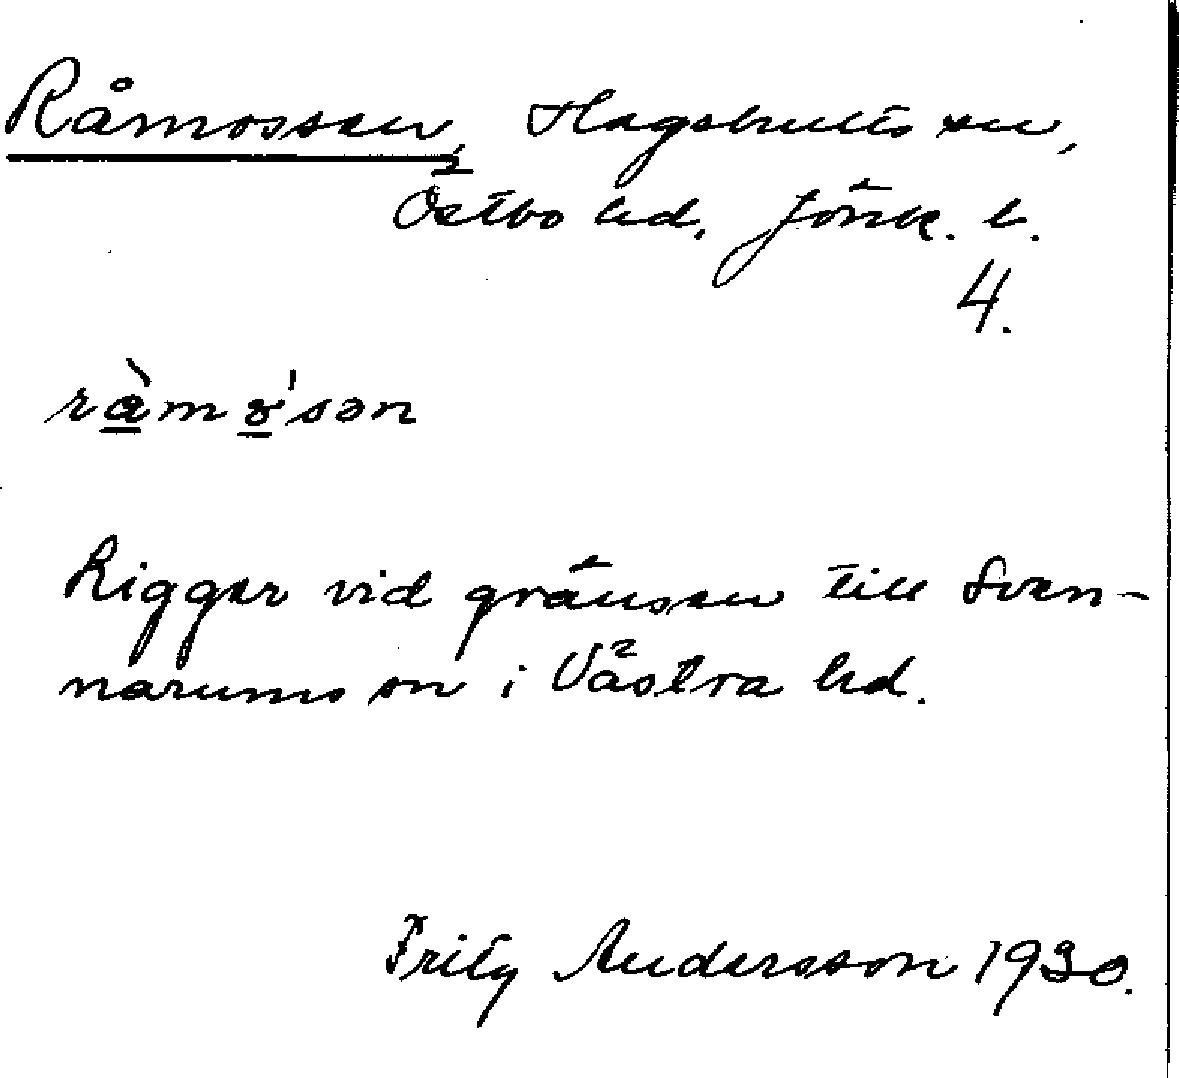 Råmossen, Hagshults sn,
Östbo hd, Jönk. l.
4.
rå̀mɷ'sən
Ligger vid gränsen till Sven-
narums sn i Västra hd.
Fritz Andersson 1930.